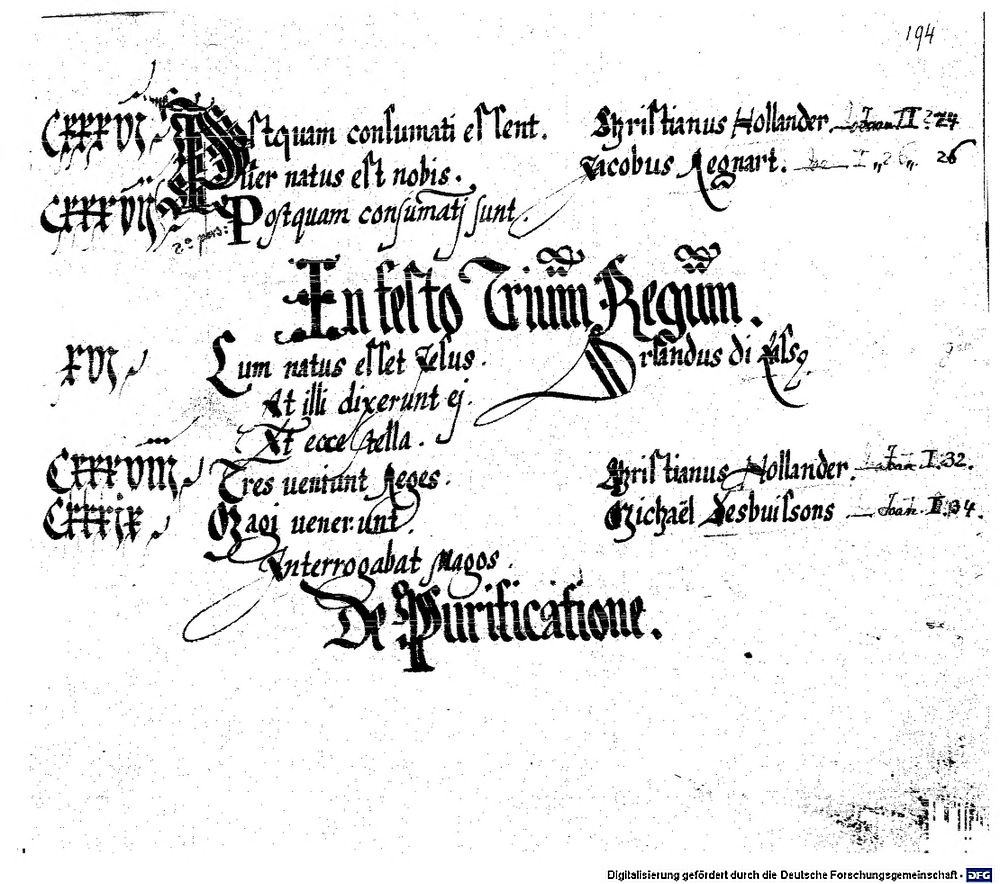 194
CXXXVI Postquam consumati essent. Christianus Hollander. Joan II 24
Puer natus est nobis. Jacobus Regnart. I 26 26
CXXXVII 2ª pars: Postquam consumatj sunt.
In festo Trium Regum.
XVI Cum natus esset Jesus. Orlandus di Lasso
At illi dixerunt ej.
Et ecce stella.
CXXXVIII Tres veniunt Reges. Christianus Hollander. Joan I. 32.
CXXXIX Magi venerunt. Michaël Desbuissons Joan I. 34.
Interrogabat magos.
De Purificatione.
Digitalisierung gefördert durch die Deutsche Forschungsgemeinschaft - DFG